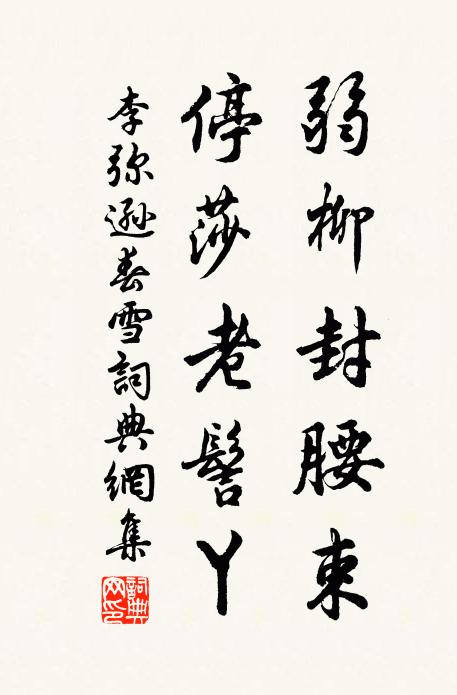 弱柳封腰束
停莎老髻丫
李弥逊春雪詞典網集
詞典网印